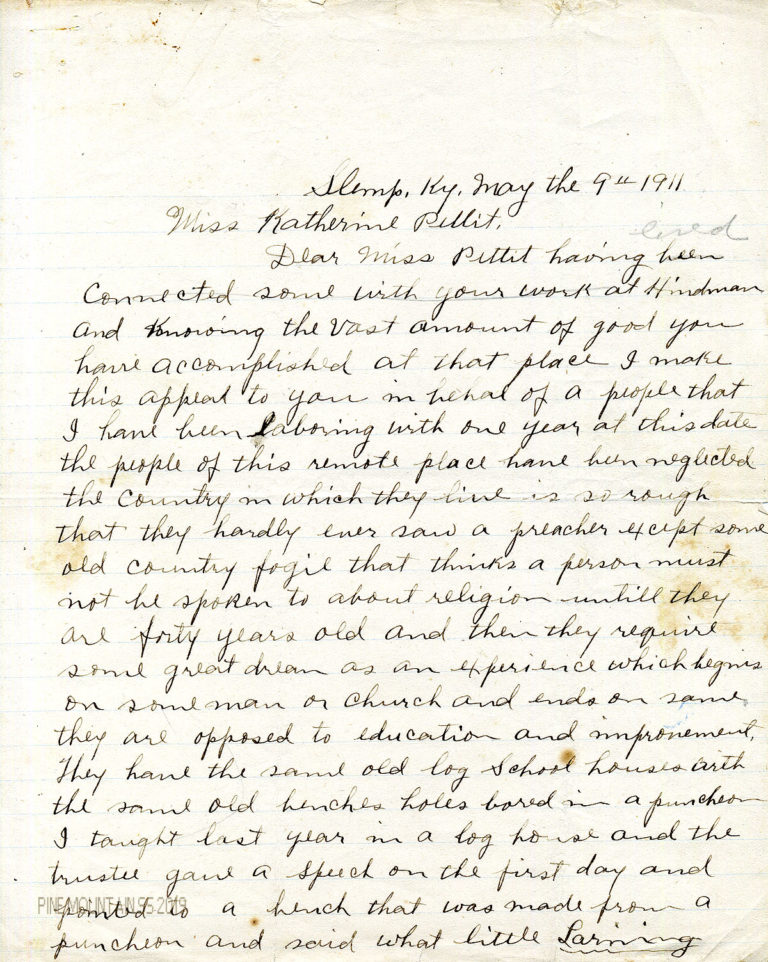 Slemp, Ky, May the 9th 1911
Miss Katherine Pettit.
Dear Miss Pettit having been
Connected some with your work at Hindman
and Knowing the Vast amount of good you
have accomplished at that place I make
this appeal to you in behal of a people that
I have been laboring with one year at this date
the people of this remote place have been neglected
the country in which they live is so rough
that they hardly ever saw a preacher except some
old country fogie that thinks a person must
not be spoken to about religion untill they
are forty years old and then they require
some great dream as an experience which begins
on some man or church and ends on same,
they are opposed to education and improvement,
They have the same old log School houses with
the same old benches holes bored in a puncheon
I taught last year in a log house and the
trustee gave a speech on the first day and
PINE MOUNTAIN SS 2019
pointed to a bench that was made from a
puncheon and said what little Larning